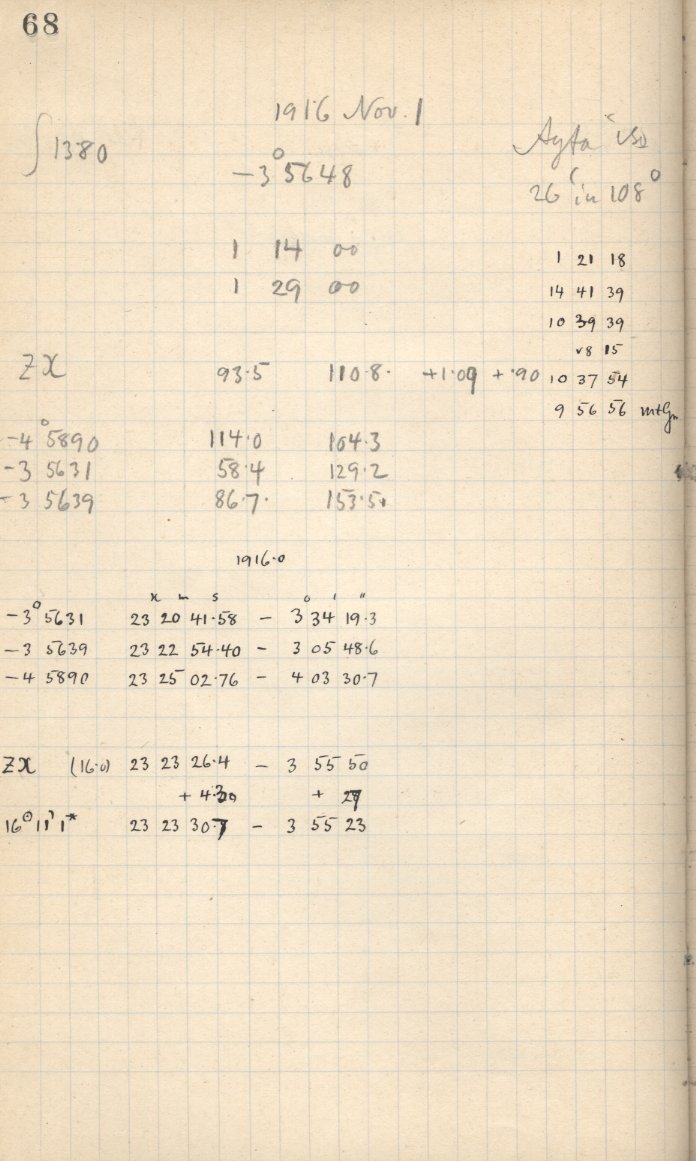 68
1916 Nov. 1
∫1380
-3° 5648
26' in 108°
1 14 00
1 29 00
1 21 18
14 41 39
10 39 39
15
10 37 54
9 56 56
ZX 93.5 110.8. +1.09 +.90
-4° 5890 114.0 104.3
-3 5631 58.4 129.2
-3 5639 86.7. 153.5
1916.0
m s ° ' "
-3° 5631 23 20 41.58 - 3 34 19.3
-3 5639 23 22 54.40 - 3 05 48.6
-4 5890 23 25 02.76 - 4 03 30.7
ZX (16.0) 23 23 26.4 - 3 55 50
+ 4.3 + 27
23 23 30.7 - 3 55 23